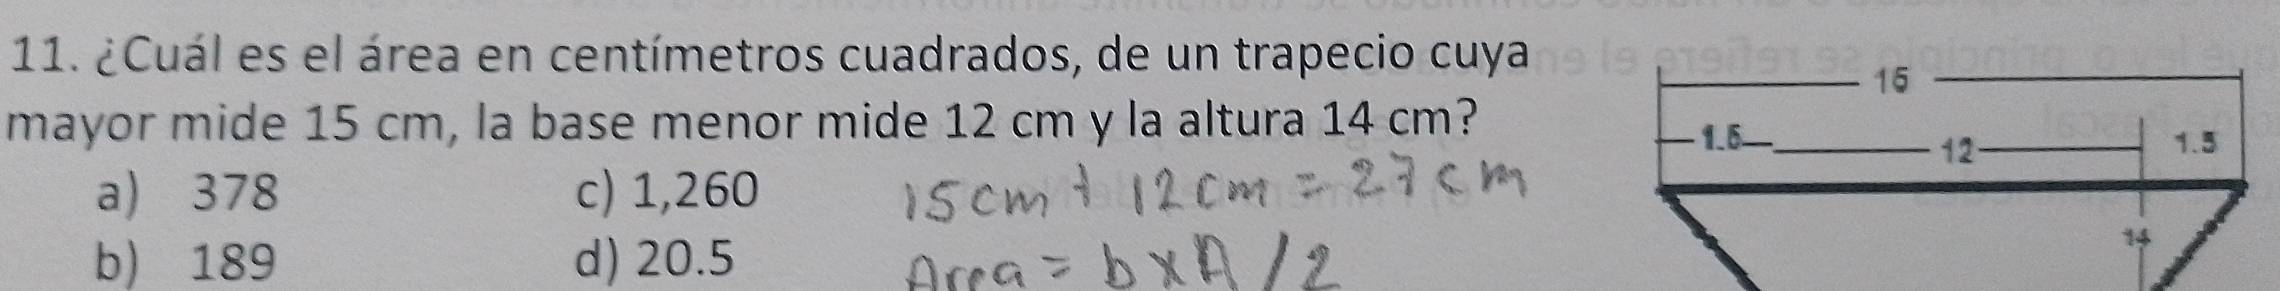 11. ¿Cuál es el área en centímetros cuadrados, de un trapecio cuya
mayor mide 15 cm, la base menor mide 12 cm y la altura 14 cm?
a) 378
c) 1,260
b) 189
d) 20.5
15cm + 12cm = 27cm
Area = b x A / 2
15
1.5 12 1.5
14